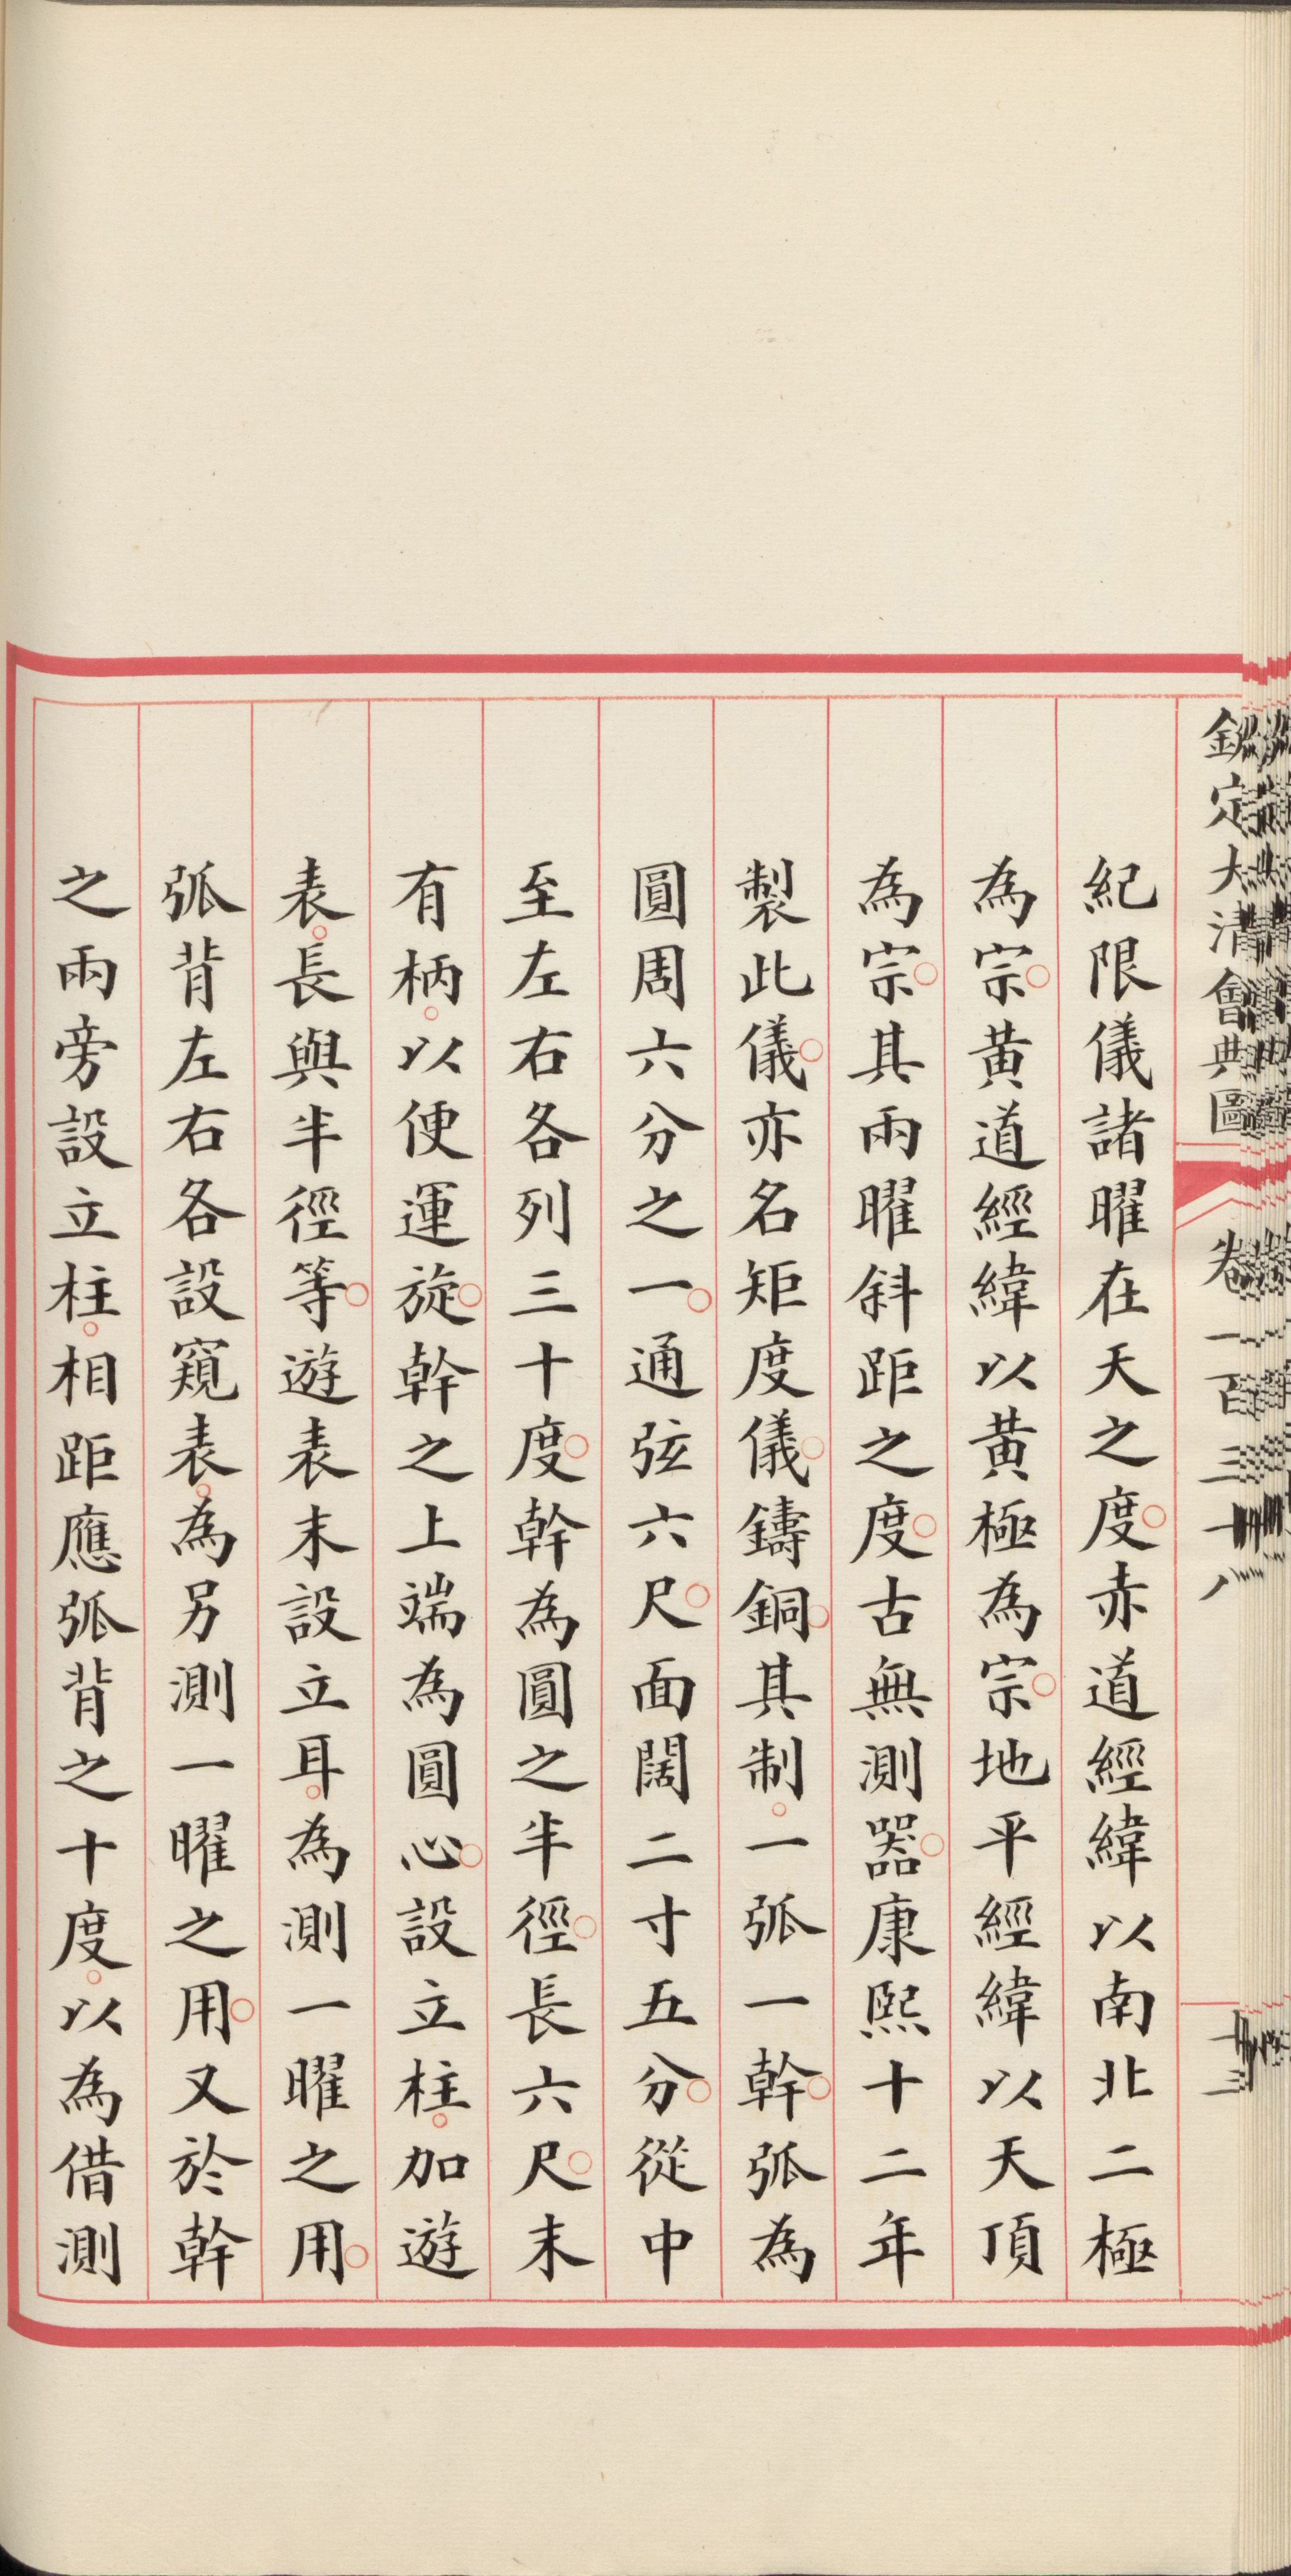 欽定大清會典圖 卷一百三十八 十三
紀限儀諸曜在天之度。赤道經緯以南北二極
為宗。黃道經緯以黃極為宗。地平經緯以天頂
為宗。其兩曜斜距之度。古無測器。康熙十二年
製此儀。亦名矩度儀。鑄銅。其制。一弧一幹。弧為
圓周六分之一。通弦六尺。面闊二寸五分。從中
至左右各列三十度。幹為圓之半徑。長六尺。末
有柄。以便運旋。幹之上端為圓心。設立柱。加遊
表。長與半徑等。遊表末設立耳。為測一曜之用。
弧背左右各設窺表。為另測一曜之用。又於幹
之兩旁設立柱。相距應弧背之十度。以為借測